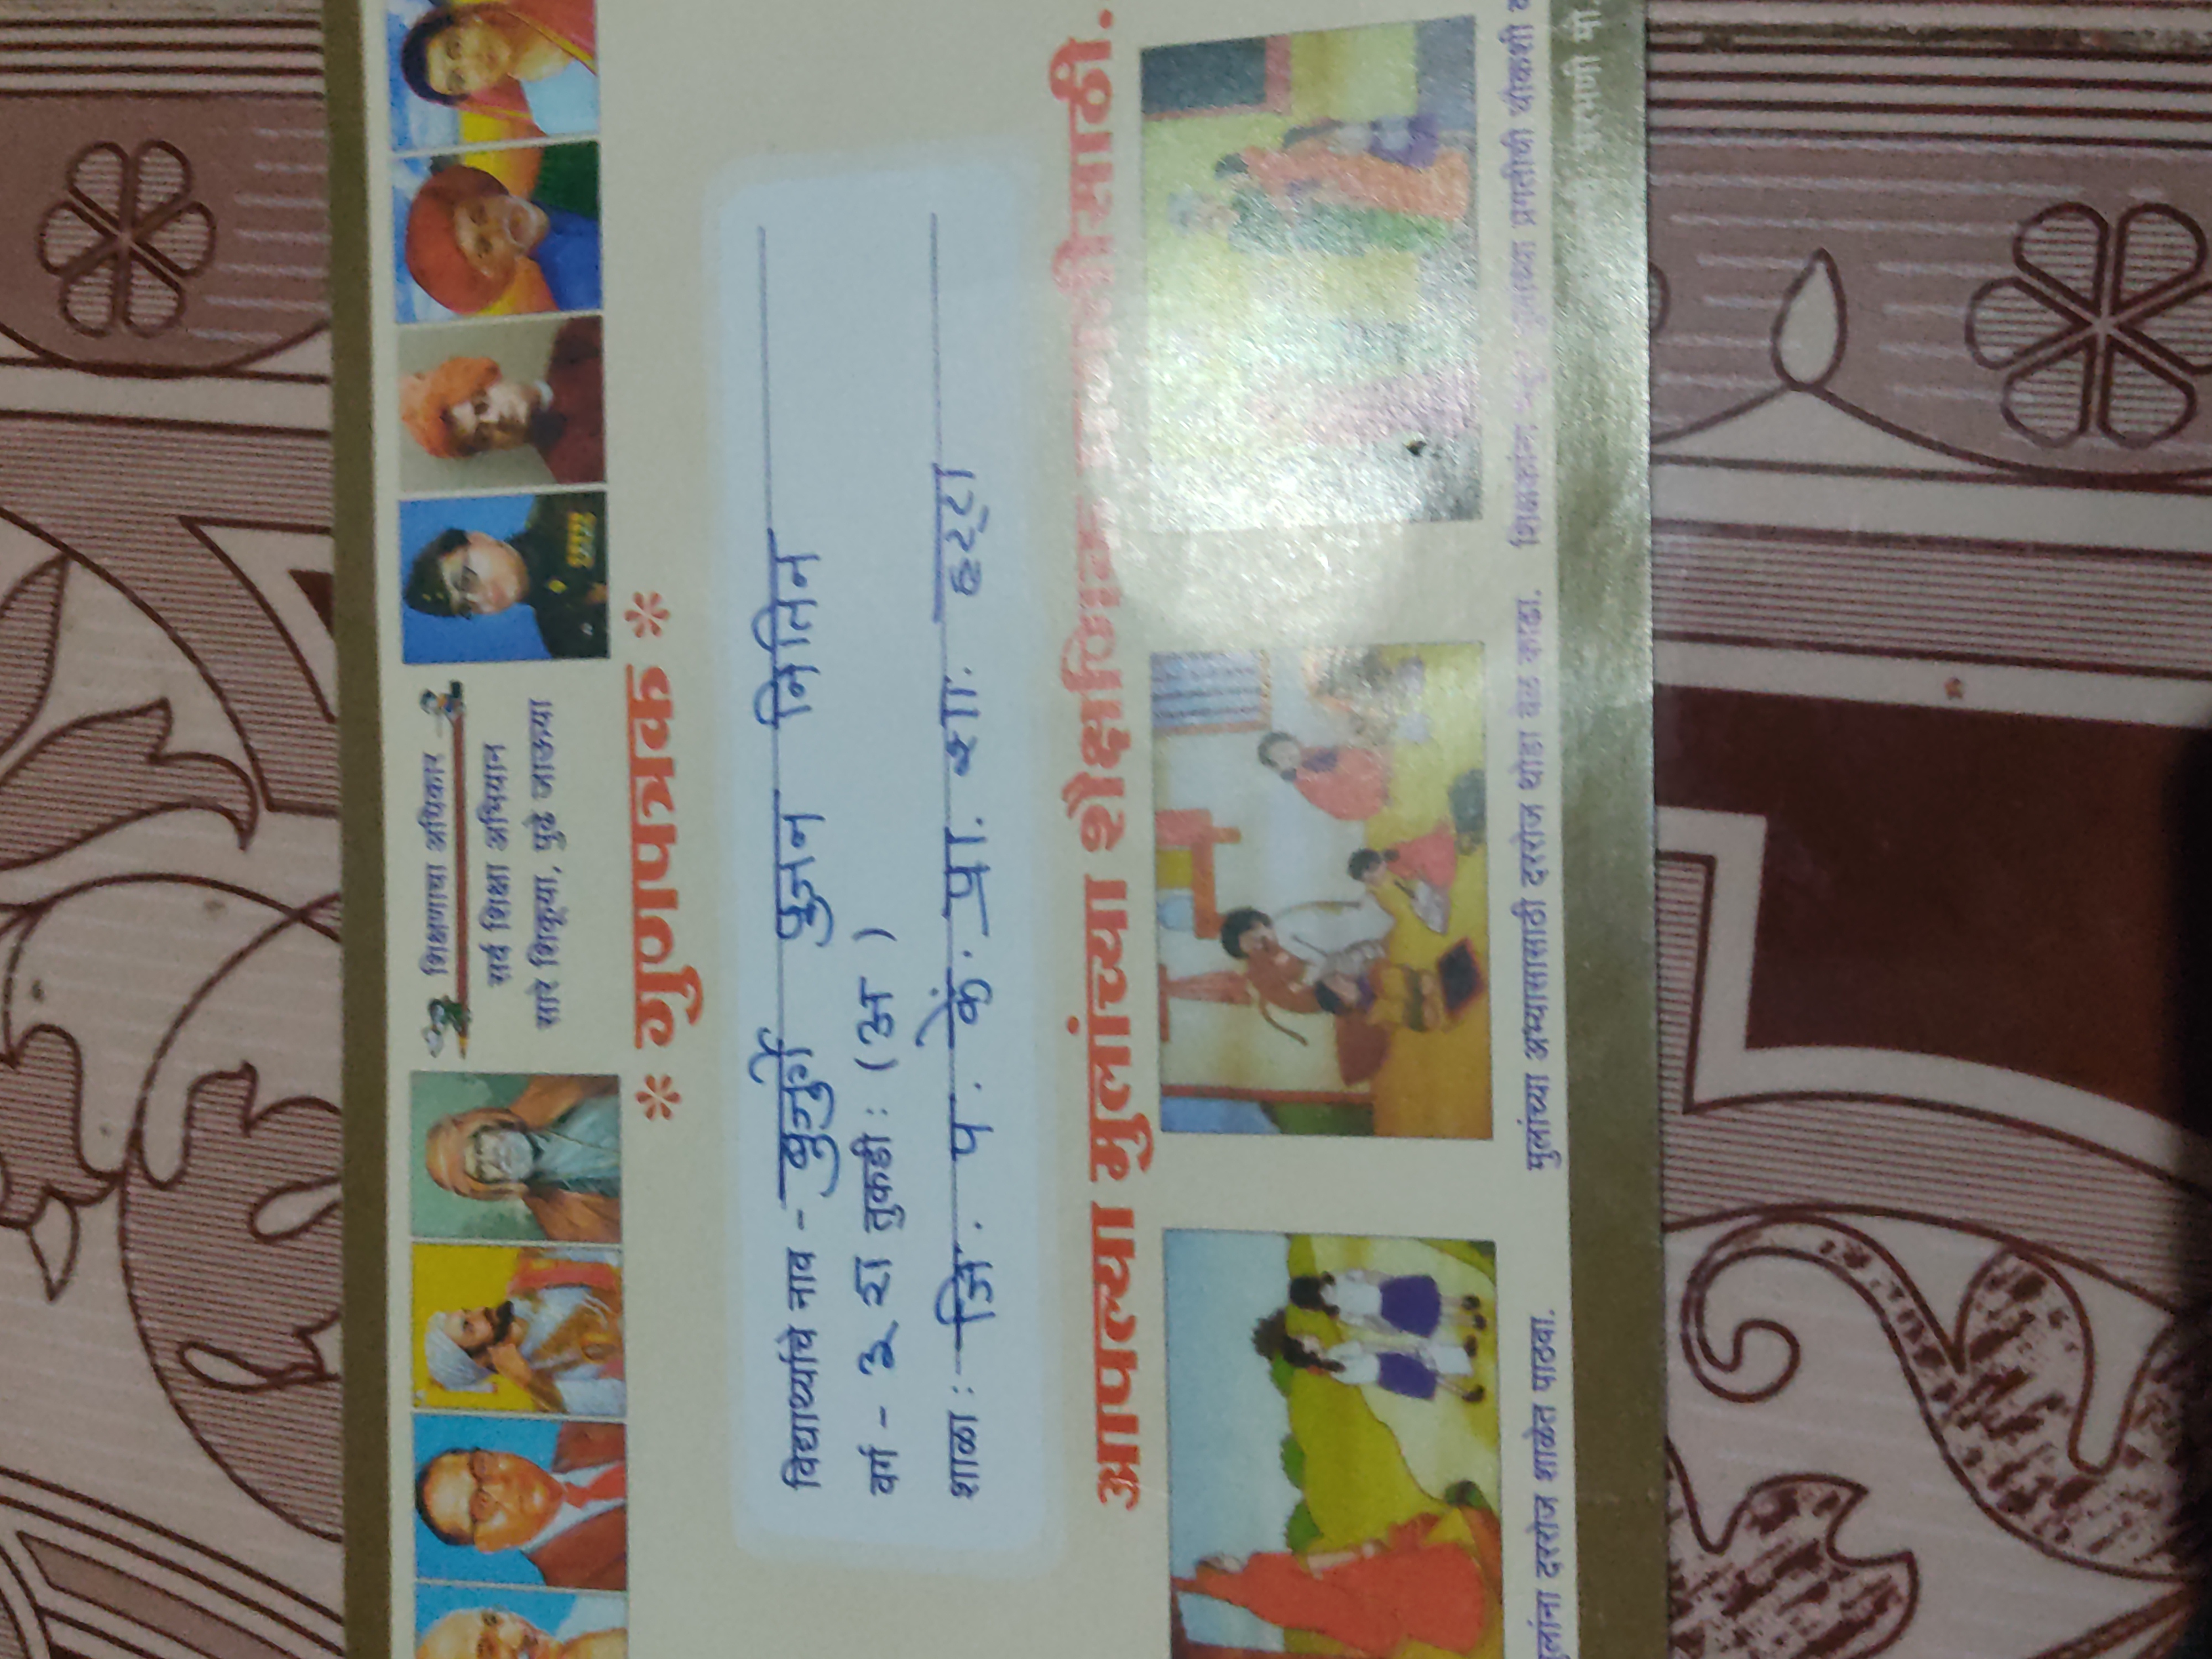 शिक्षणाचा अधिकार
सर्व शिक्षा अभियान
सारे शिकूया, पुढे जाऊया
* गुणपत्रक *
विद्यार्थ्याचे नाव - बुजुर्गे पुजन नितिन
वर्ग - ३ रा तुकडी : (अ )
शाळा : जि. प. कें. प्रा. शा. हट्टा
आपल्या मुलांच्या शैक्षणिक प्रगतीसाठी.
मुलांना दररोज शाळेत पाठवा.
मुलांच्या अभ्यासासाठी दररोज थोडा वेळ काढा.
प्रगतीची चौकशी